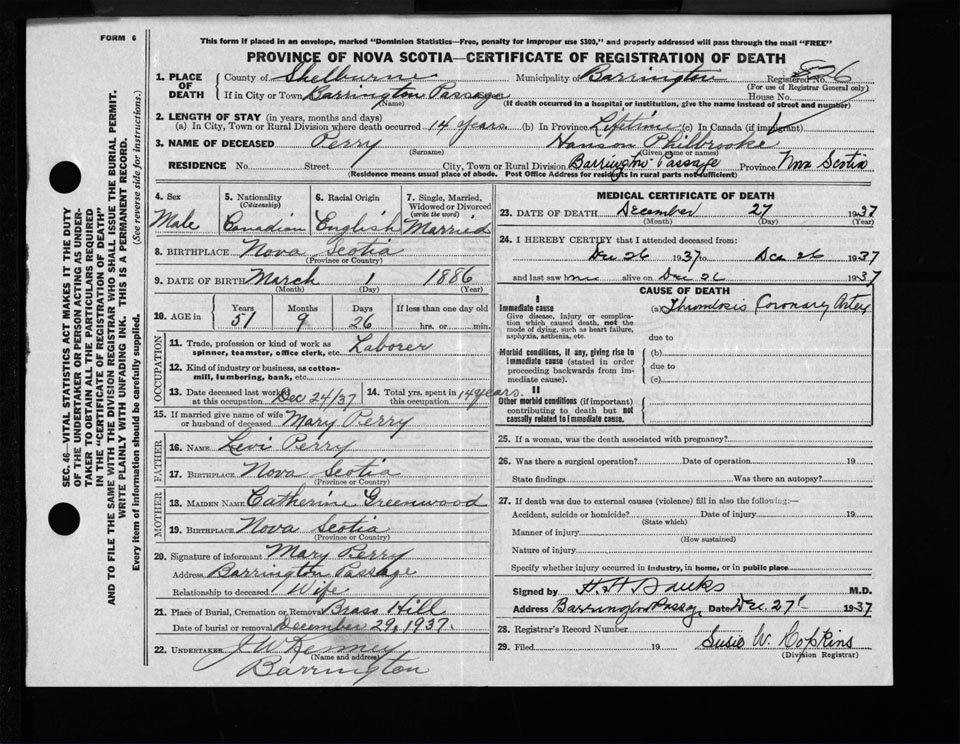 FORM 6
This form if placed in an envelope, marked "Dominion Statistics—Free, penalty for improper use $300," and properly addressed will pass through the mail "FREE"
PROVINCE OF NOVA SCOTIA—CERTIFICATE OF REGISTRATION OF DEATH
1. PLACE OF DEATH
County of Shelburne Municipality of Barrington Registered No.
(For use of Registrar General only)
If in City or Town Barrington Passage House No.
(Name) (If death occurred in a hospital or institution, give the name instead of street and number)
2. LENGTH OF STAY (in years, months and days)
(a) In City, Town or Rural Division where death occurred 14 years (b) In Province Lifetime (c) In Canada (if immigrant)
3. NAME OF DECEASED Perry Hanson Philbrooke
(Surname) (Given name or names)
RESIDENCE No. Street City, Town or Rural Division Barrington Passage Province Nova Scotia
(Residence means usual place of abode. Post Office Address for residents in rural parts not sufficient)
4. Sex
Male
5. Nationality
(Citizenship)
Canadian
6. Racial Origin
English
7. Single, Married, Widowed or Divorced
(write the word)
Married
8. BIRTHPLACE Nova Scotia
(Province or Country)
9. DATE OF BIRTH March 1 1886
(Month) (Day) (Year)
10. AGE in Years Months Days If less than one day old
51 9 26 hrs. or min.
OCCUPATION
11. Trade, profession or kind of work as
spinner, teamster, office clerk, etc. Laborer
12. Kind of industry or business, as cotton-
mill, lumbering, bank, etc.
13. Date deceased last worked
at this occupation Dec 24/37
14. Total yrs. spent in
this occupation 14 years
15. If married give name of wife
or husband of deceased Mary Perry
FATHER
16. NAME Levi Perry
17. BIRTHPLACE Nova Scotia
(Province or Country)
MOTHER
18. MAIDEN NAME Catherine Greenwood
19. BIRTHPLACE Nova Scotia
(Province or Country)
20. Signature of informant Mary Perry
Address Barrington Passage
Relationship to deceased Wife
21. Place of Burial, Cremation or Removal Brass Hill
Date of burial or removal December 29, 1937.
22. UNDERTAKER J W Kenney
(Name and address)
Barrington
MEDICAL CERTIFICATE OF DEATH
23. DATE OF DEATH December 27 1937
(Month) (Day) (Year)
24. I HEREBY CERTIFY that I attended deceased from:
Dec 26 1937 to Dec 26 1937
and last saw alive on Dec 26 1937
CAUSE OF DEATH
I
Immediate cause
Give disease, injury or complica-
tion which caused death, not the
mode of dying, such as heart failure,
asphyxia, asthenia, etc.
(a) Thrombosis Coronary Artery
due to
Morbid conditions, if any, giving rise to
immediate cause (stated in order
proceeding backwards from im-
mediate cause).
(b)
due to
(c)
II
Other morbid conditions (if important)
contributing to death but not
causally related to immediate cause.
25. If a woman, was the death associated with pregnancy?
26. Was there a surgical operation? Date of operation 19
State findings Was there an autopsy?
27. If death was due to external causes (violence) fill in also the following:—
Accident, suicide or homicide? Date of injury 19
(State which)
Manner of injury
(How sustained)
Nature of injury
Specify whether injury occurred in industry, in home, or in public place
Signed by M.D.
Address Barrington Passage Date Dec. 27 1937
28. Registrar's Record Number
29. Filed 19 Susie W. Hopkins
(Division Registrar)
SEC. 46—VITAL STATISTICS ACT MAKES IT THE DUTY
OF THE UNDERTAKER OR PERSON ACTING AS UNDER-
TAKER TO OBTAIN ALL THE PARTICULARS REQUIRED
IN THE "CERTIFICATE OF REGISTRATION OF DEATH"
AND TO FILE THE SAME WITH THE DIVISION REGISTRAR WHO SHALL ISSUE THE BURIAL PERMIT.
WRITE PLAINLY WITH UNFADING INK. THIS IS A PERMANENT RECORD.
Every item of information should be carefully supplied. (See reverse side for instructions.)